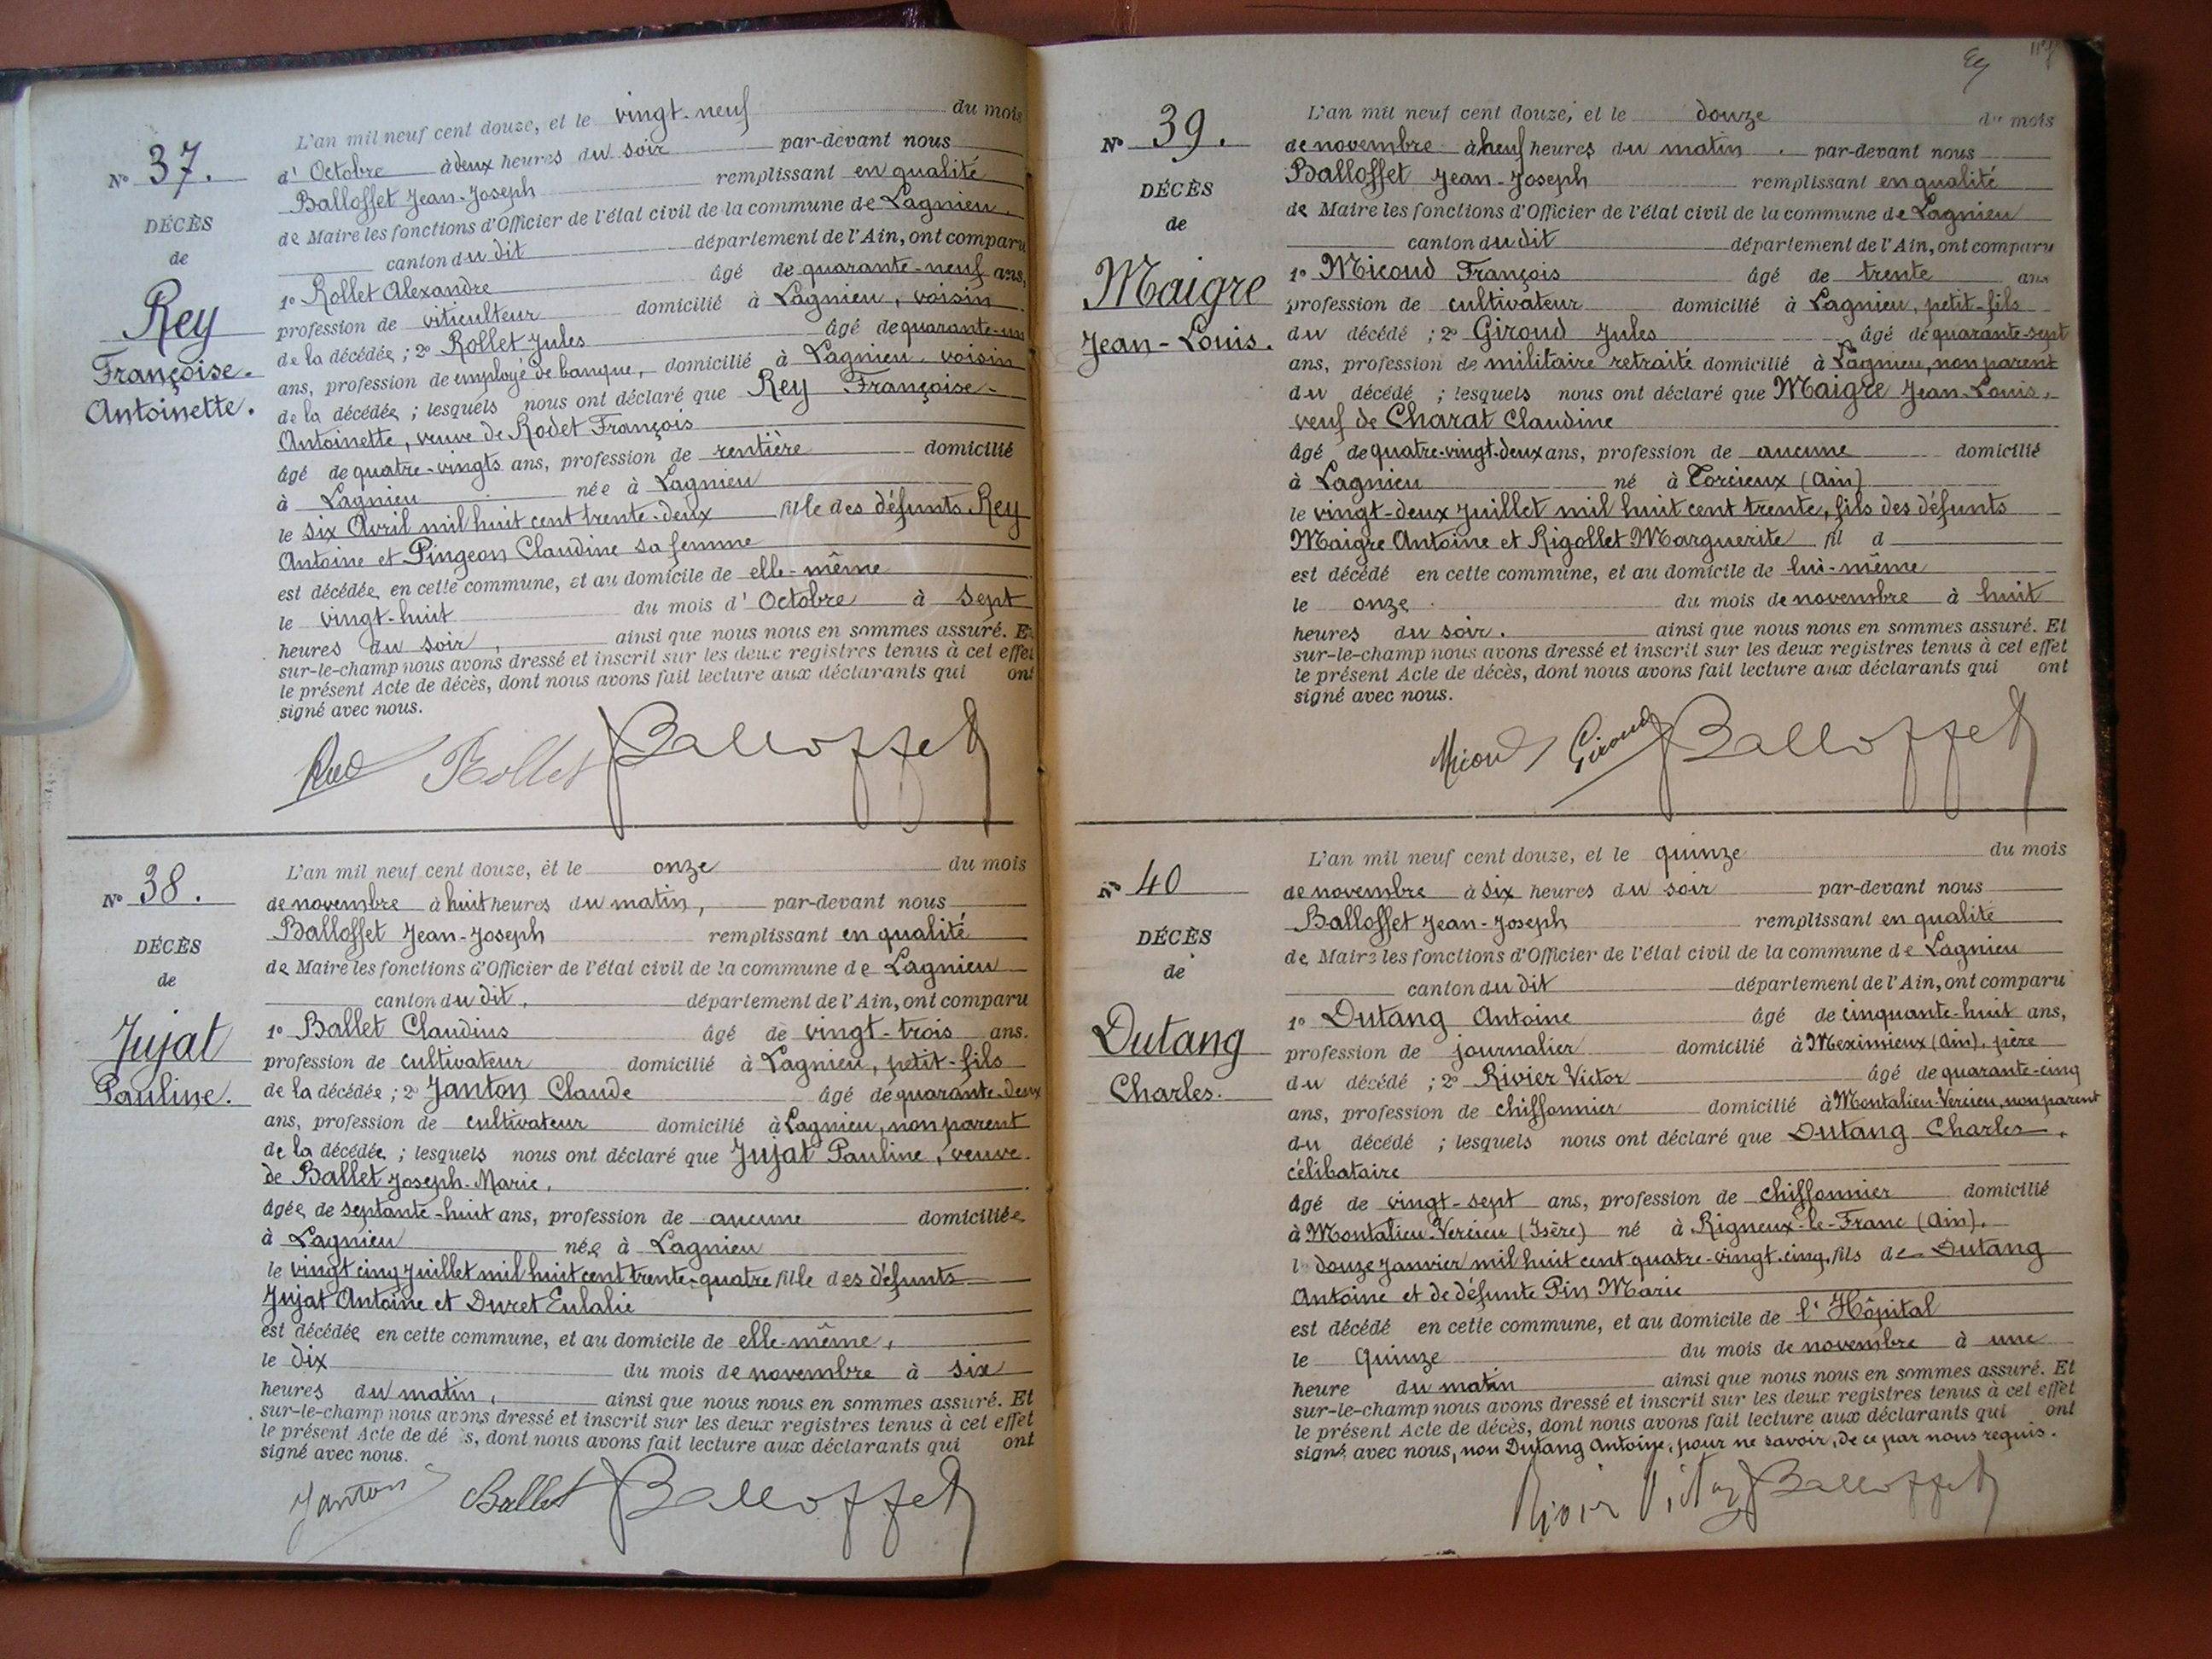 N° 37.
DÉCÈS
de
Rey
Françoise-
Antoinette.
L'an mil neuf cent douze, et le vingt-neuf du mois
d'Octobre à deux heures du soir par-devant nous
Balloffet Jean-Joseph remplissant en qualité
de Maire les fonctions d'Officier de l'état civil de la commune de Lagnieu,
canton du dit département de l'Ain, ont comparu
1° Rollet Alexandre âgé de quarante-neuf ans,
profession de viticulteur domicilié à Lagnieu, voisin
de la décédée ; 2° Rollet Jules âgé de quarante-un
ans, profession de employé de banque, domicilié à Lagnieu voisin
de la décédée ; lesquels nous ont déclaré que Rey Françoise-
Antoinette, veuve de Rodet François
âgé de quatre-vingts ans, profession de rentière domicilié
à Lagnieu née à Lagnieu
le six Avril mil huit cent trente-deux fille des défunts Rey
Antoine et Pingeon Claudine sa femme
est décédée en cette commune, et au domicile de elle-même
le vingt-huit du mois d'Octobre à sept
heures du soir, ainsi que nous nous en sommes assuré. Et
sur-le-champ nous avons dressé et inscrit sur les deux registres tenus à cet effet
le présent Acte de décès, dont nous avons fait lecture aux déclarants qui ont
signé avec nous.
Rollet Balloffet
N° 38.
DÉCÈS
de
Jujat
Pauline.
L'an mil neuf cent douze, et le onze du mois
de novembre à huit heures du matin, par-devant nous
Balloffet Jean-Joseph remplissant en qualité
de Maire les fonctions d'Officier de l'état civil de la commune de Lagnieu
canton du dit, département de l'Ain, ont comparu
1° Ballet Claudius âgé de vingt-trois ans.
profession de cultivateur domicilié à Lagnieu, petit-fils
de la décédée ; 2° Janton Claude âgé de quarante-deux
ans, profession de cultivateur domicilié à Lagnieu, non parent
de la décédée ; lesquels nous ont déclaré que Jujat Pauline, veuve
de Ballet Joseph-Marie,
âgée de septante-huit ans, profession de aucune domiciliée
à Lagnieu née à Lagnieu
le vingt cinq Juillet mil huit cent trente-quatre fille des défunts
Jujat Antoine et Duret Eulalie
est décédée en cette commune, et au domicile de elle-même,
le dix du mois de novembre à six
heures du matin, ainsi que nous nous en sommes assuré. Et
sur-le-champ nous avons dressé et inscrit sur les deux registres tenus à cet effet
le présent Acte de dé s, dont nous avons fait lecture aux déclarants qui ont
signé avec nous.
Janton Ballet Balloffet
N° 39.
DÉCÈS
de
Maigre
Jean-Louis.
L'an mil neuf cent douze, et le douze du mois
de novembre à neuf heures du matin. par-devant nous
Balloffet Jean-Joseph remplissant en qualité
de Maire les fonctions d'Officier de l'état civil de la commune de Lagnieu
canton du dit département de l'Ain, ont comparu
1° Micoud François âgé de trente ans
profession de cultivateur domicilié à Lagnieu, petit-fils
du décédé ; 2° Giroud Jules âgé de quarante-sept
ans, profession de militaire retraité domicilié à Lagnieu, non parent
du décédé ; lesquels nous ont déclaré que Maigre Jean-Louis,
veuf de Charat Claudine
âgé de quatre-vingt-deux ans, profession de aucune domicilié
à Lagnieu né à Torcieux (Ain)
le vingt-deux Juillet mil huit cent trente, fils des défunts
Maigre Antoine et Rigollet Marguerite fil d
est décédé en cette commune, et au domicile de lui-même
le onze du mois de novembre à huit
heures du soir. ainsi que nous nous en sommes assuré. Et
sur-le-champ nous avons dressé et inscrit sur les deux registres tenus à cet effet
le présent Acte de décès, dont nous avons fait lecture aux déclarants qui ont
signé avec nous.
Micoud Giroud Balloffet
N° 40
DÉCÈS
de
Dutang
Charles.
L'an mil neuf cent douze, et le quinze du mois
de novembre à six heures du soir par-devant nous
Balloffet Jean-Joseph remplissant en qualité
de Maire les fonctions d'Officier de l'état civil de la commune de Lagnieu
canton du dit département de l'Ain, ont comparu
1° Dutang Antoine âgé de cinquante-huit ans,
profession de journalier domicilié à Meximieux (Ain), père
du décédé ; 2° Rivier Victor âgé de quarante-cinq
ans, profession de chiffonnier domicilié à Montalieu-Vercieu, non parent
du décédé ; lesquels nous ont déclaré que Dutang Charles,
célibataire
âgé de vingt-sept ans, profession de chiffonnier domicilié
à Montalieu-Vercieu (Isère) né à Rigneux-le-Franc (Ain),
le douze Janvier mil huit cent quatre-vingt-cinq, fils de Dutang
Antoine et de défunte Pin Marie
est décédé en cette commune, et au domicile de l'Hôpital
le Quinze du mois de novembre à une
heure du matin ainsi que nous nous en sommes assuré. Et
sur-le-champ nous avons dressé et inscrit sur les deux registres tenus à cet effet
le présent Acte de décès, dont nous avons fait lecture aux déclarants qui ont
signé avec nous, non Dutang Antoine, pour ne savoir, de ce par nous requis.
Rivier Victor Balloffet